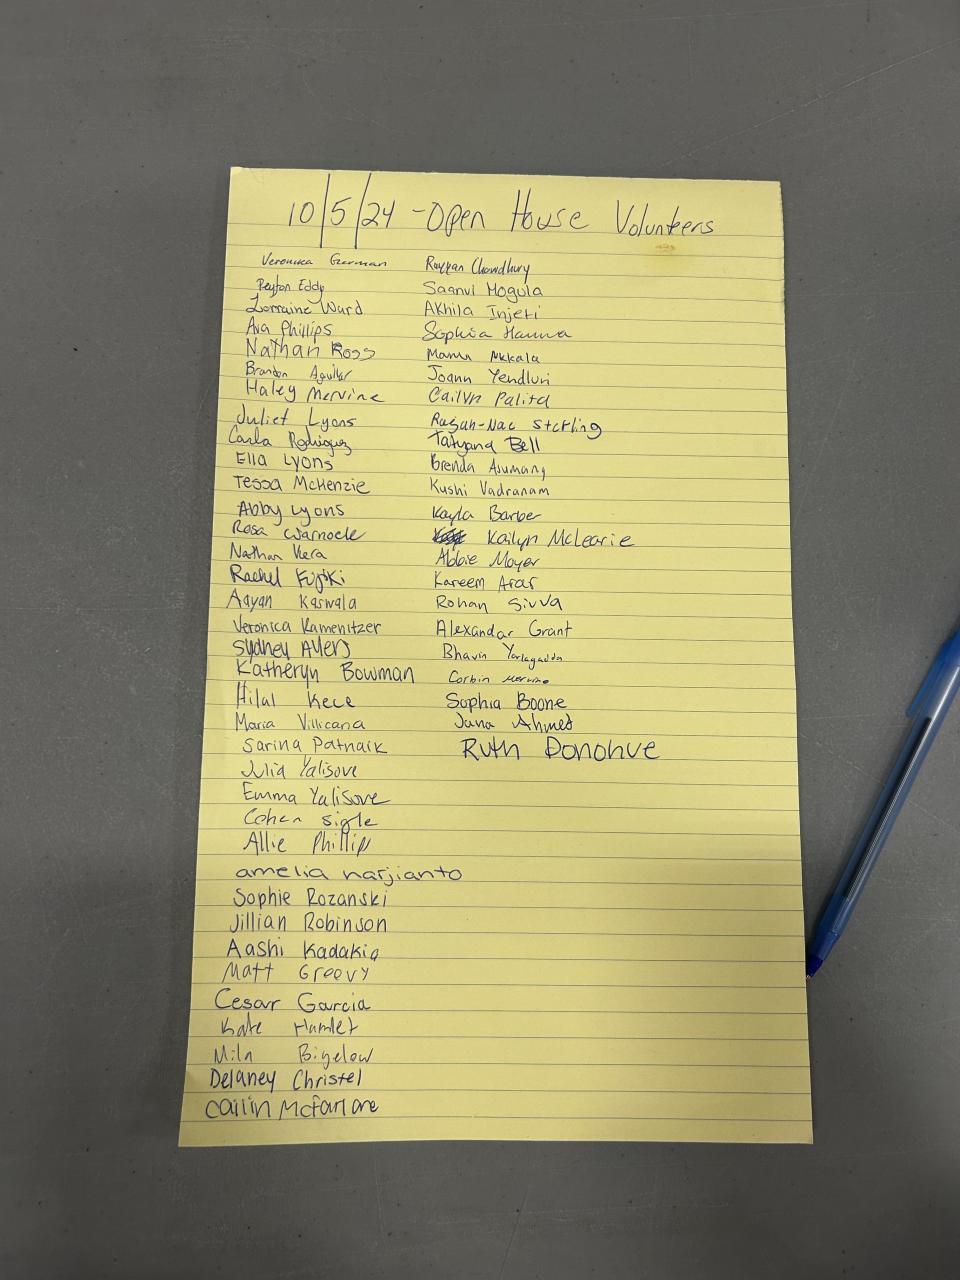 10/5/24 - Open House Volunteers
Veronica German
Peyton Eddy
Lorraine Ward
Ava Phillips
Nathan Ross
Brandon Aguilar
Haley Mervine
Juliet Lyons
Carla Rodriguez
Ella Lyons
Tessa McKenzie
Abby Lyons
Rosa Warnock
Nathan Vera
Rachel Fujiki
Aayan Kaswala
Veronica Kamenitzer
Sydney Ayers
Katheryn Bowman
Hilal Kece
Maria Villicana
Sarina Patnaik
Julia Yalisove
Emma Yalisove
Cohen Sigle
Allie Phillip
amelia narjianto
Sophie Rozanski
Jillian Robinson
Aashi Kadakia
Matt Greevy
Cesar Garcia
Kate Hamlet
Mila Bigelow
Delaney Christel
Cailin McFarlane
Chowdhury
Saanvi Mogula
Akhila Injeti
Sophia Hanna
Joann Yendluri
Cailyn Palita
Sterling
Tatyana Bell
Brenda Asumang
Kushi Vadranam
Kayla Barber
Kailyn McLearie
Abbie Moyer
Kareem Arar
Rohan Sivva
Alexandar Grant
Bhavin Yarlagadda
Corbin Mervine
Sophia Boone
Jana Ahmed
Ruth Donohue